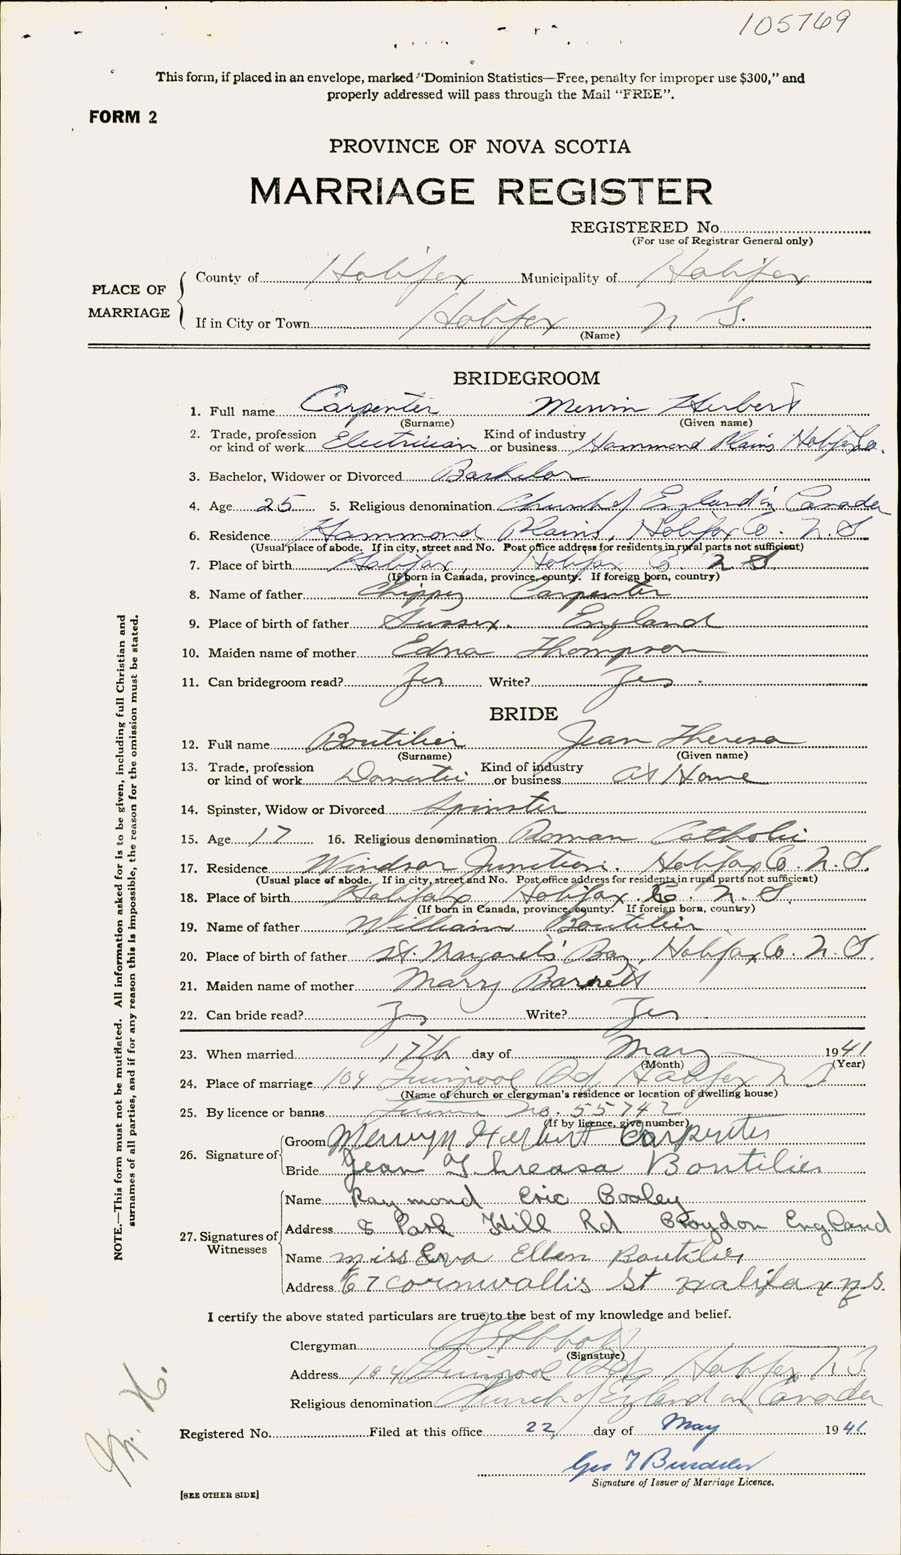 105769
This form, if placed in an envelope, marked "Dominion Statistics—Free, penalty for improper use $300," and
properly addressed will pass through the Mail "FREE".
FORM 2
PROVINCE OF NOVA SCOTIA
MARRIAGE REGISTER
REGISTERED No.
(For use of Registrar General only)
PLACE OF MARRIAGE
County of Halifax Municipality of Halifax
If in City or Town Halifax N S.
(Name)
BRIDEGROOM
1. Full name Carpenter Mervin Herbert
(Surname) (Given name)
2. Trade, profession or kind of work Electrician Kind of industry or business Hammond Plains, Halifax Co.
3. Bachelor, Widower or Divorced Bachelor
4. Age 25 5. Religious denomination Church of England in Canada
6. Residence Hammond Plains, Halifax Co. N. S
(Usual place of abode. If in city, street and No. Post office address for residents in rural parts not sufficient)
7. Place of birth Halifax, Halifax Co. N S.
(If born in Canada, province, county. If foreign born, country)
8. Name of father Carpenter
9. Place of birth of father Sussex. England
10. Maiden name of mother Edna Thompson
11. Can bridegroom read? Yes Write? Yes
BRIDE
12. Full name Boutilier Jean Theresa
(Surname) (Given name)
13. Trade, profession or kind of work Domestic Kind of industry or business At Home
14. Spinster, Widow or Divorced Spinster
15. Age 17 16. Religious denomination Roman Catholic
17. Residence Windsor Junction, Halifax Co. N. S.
(Usual place of abode. If in city, street and No. Post office address for residents in rural parts not sufficient)
18. Place of birth Halifax Halifax Co. N. S.
(If born in Canada, province, county. If foreign born, country)
19. Name of father William Boutilier
20. Place of birth of father St. Margarets' Bay, Halifax Co. N. S.
21. Maiden name of mother Mary Barrett
22. Can bride read? Yes Write? Yes
23. When married 17th day of May 1941
(Month) (Year)
24. Place of marriage 104 Quinpool Rd Halifax N S
(Name of church or clergyman's residence or location of dwelling house)
25. By licence or banns License No. 55742
(If by licence, give number)
26. Signature of
Groom Mervyn Herbert Carpenter
Bride Jean Threasa Boutilier
27. Signatures of Witnesses
Name Raymond Eric
Address 8 Park Hill Rd Croydon England
Name miss Eva Ellen Boutilier
Address 67 cornwallis St Halifax N.S.
I certify the above stated particulars are true to the best of my knowledge and belief.
Clergyman
(Signature)
Address 104 Quinpool Rd, Halifax N. S.
Religious denomination Church of England in Canada
Registered No. Filed at this office 22 day of May 1941
Geo
Signature of Issuer of Marriage Licence.
[SEE OTHER SIDE]
NOTE.—This form must not be mutilated. All information asked for is to be given, including full Christian and
surnames of all parties, and if for any reason this is impossible, the reason for the omission must be stated.